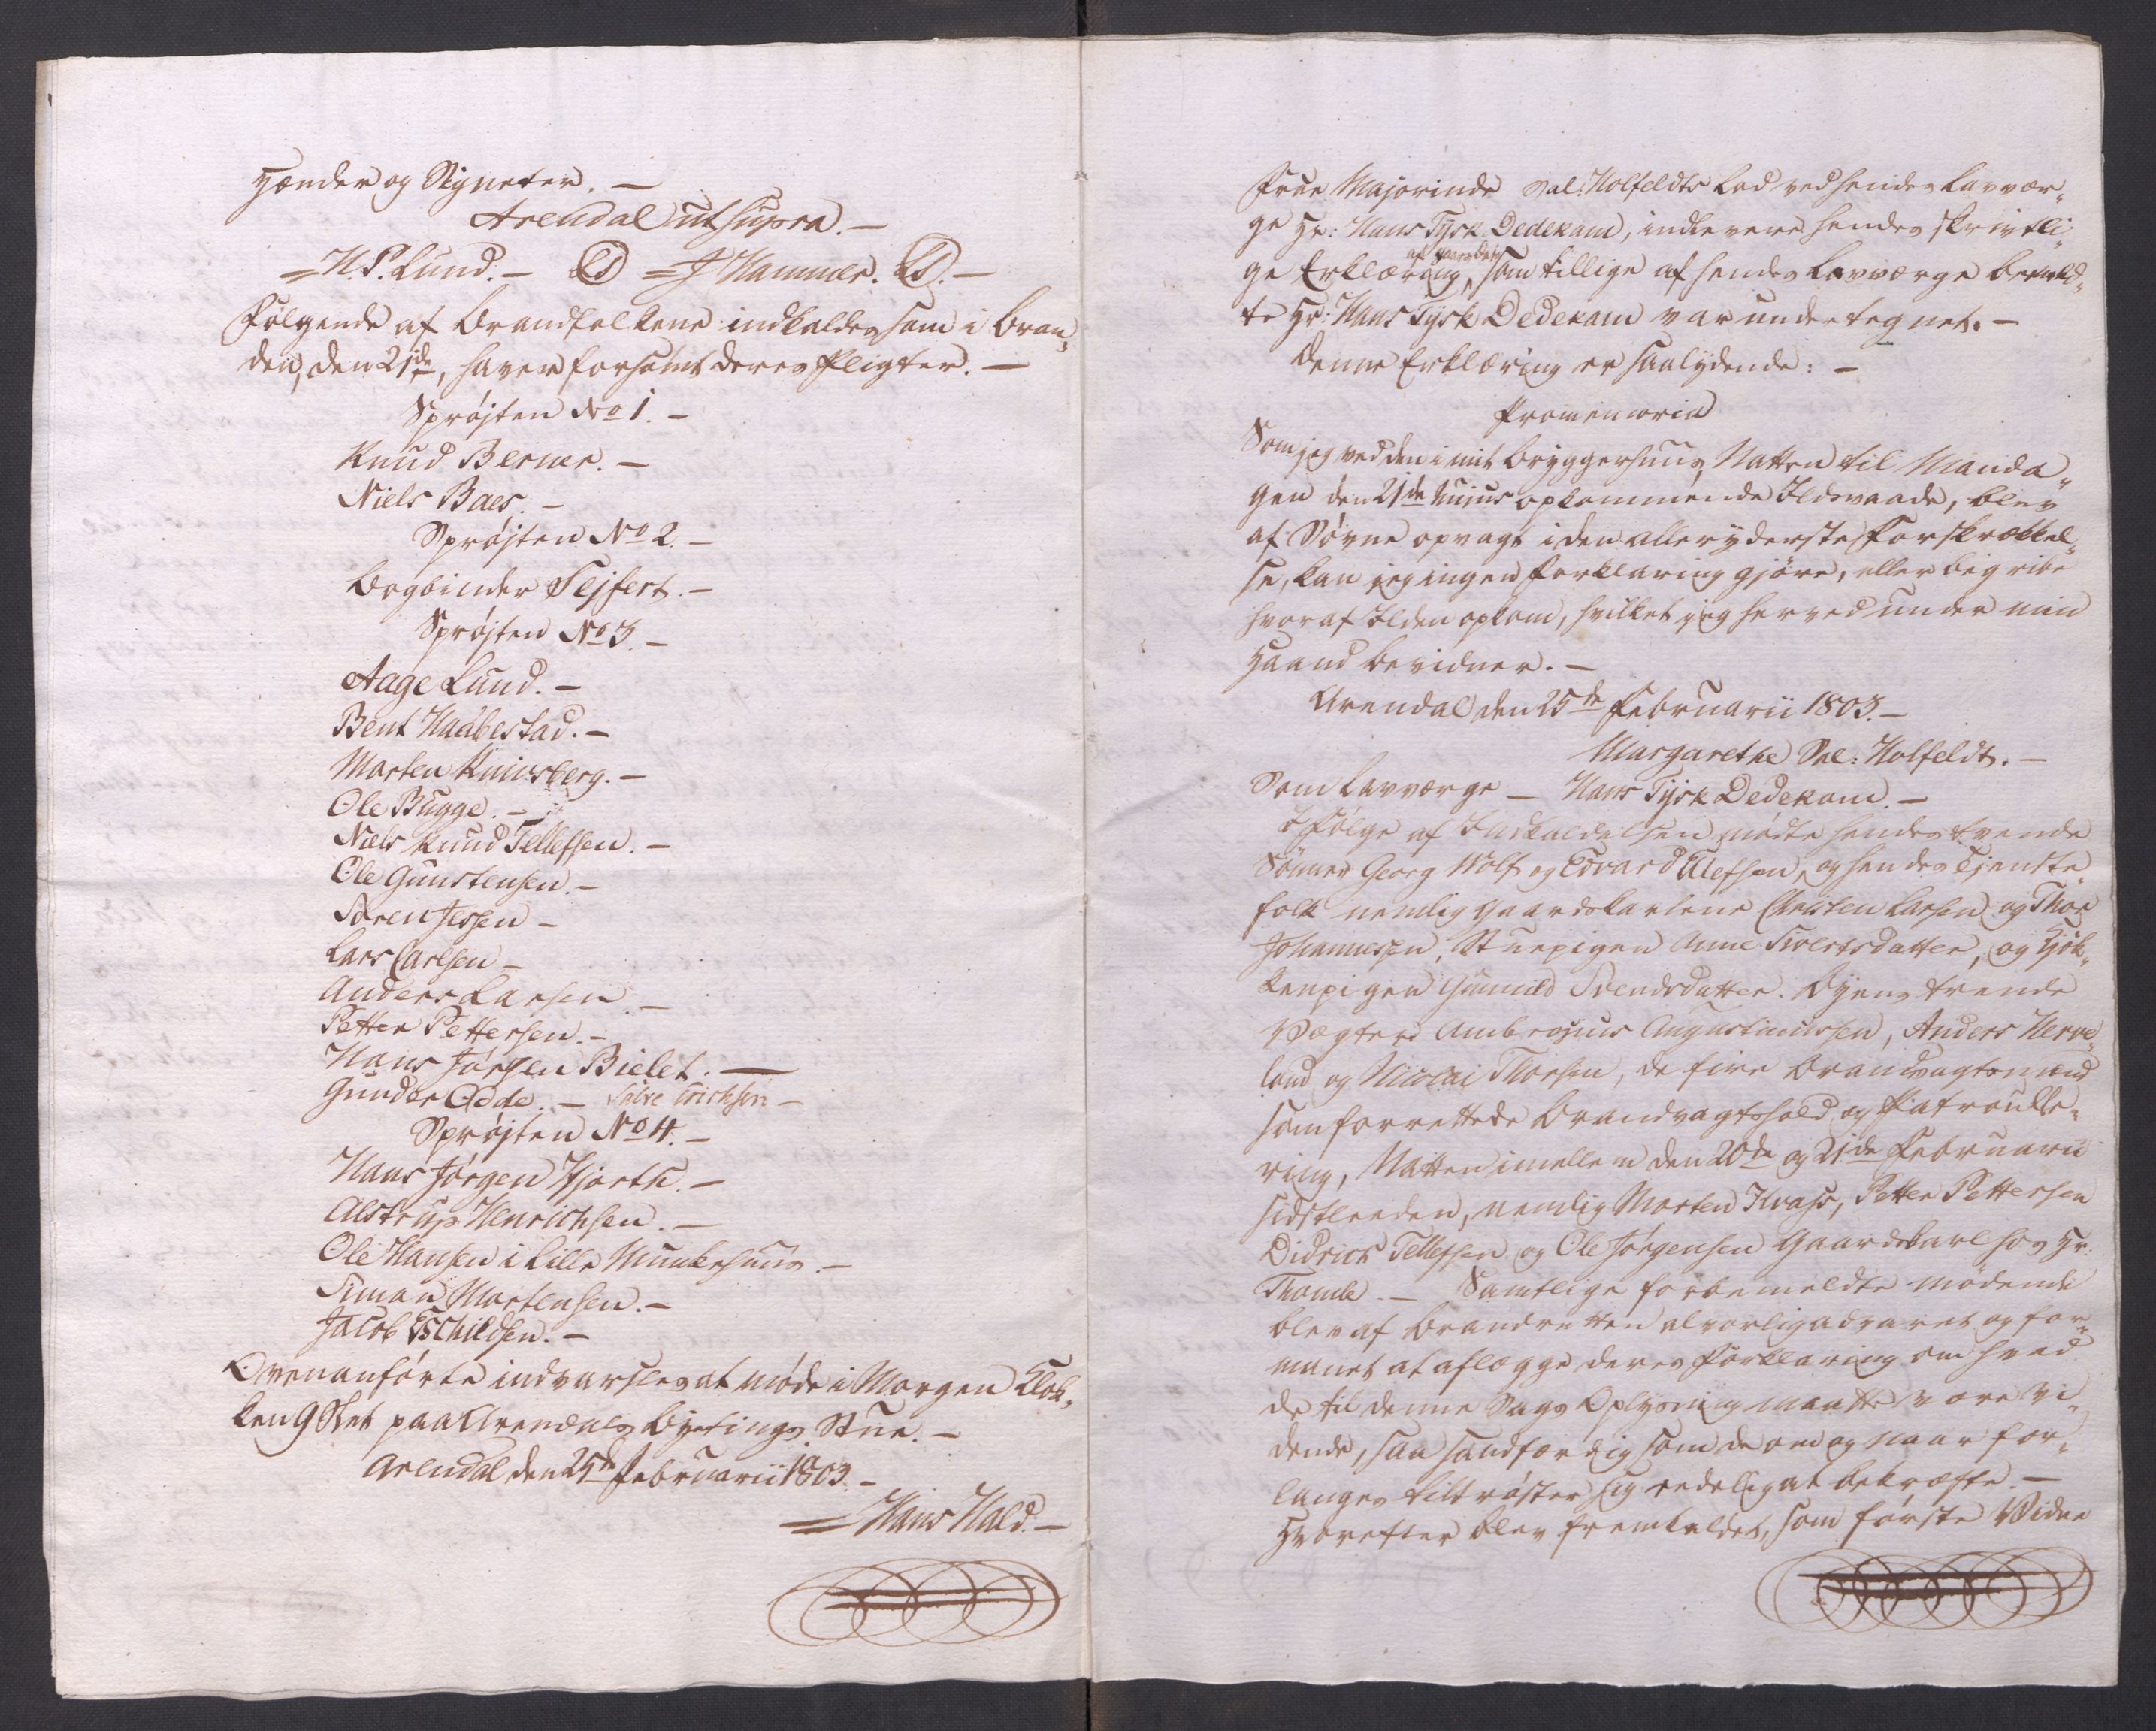 Hænder og Signeter. —
Arendal ut supra. —
= H. P. Lund. — LS = J Hammer. LS. —
Følgende af Brandfolkene indkaldes som i Bran„
den, den 21de, haver forsömt deres Pligter. —
Spröjten No 1. —
Knud Berner. —
Niels Baes. —
Spröjten No 2. —
Bogbinder Sejfert. —
Spröjten No 3. —
Aage Lund. —
Bent Haabestad. —
Morten Knivsberg. —
Ole Bugge. —
Niels Knud Tellefsen. —
Ole Gunstensen. —
Sören Jessen —
Lars Carlsen —
Anders Larsen —
Petter Pettersen. —
Hans Jörgen Bielet. —
Gunder Odde. — Salve Erichsen —
Spröjten No 4. —
Hans Jörgen Hjorth. —
Alstrup Henrichsen. —
Ole Hansen i Lille Munkehuus. —
Simon Mortensen. —
Jacob Eschildsen. —
Ovenanførte indvarsles at møde i Morgen Klok„
ken 9 Slet paa Arendals Bytings Stue. —
Arendal den 25de Februarii 1803. —
= Hans Hald. —
Frue Majorinde Sal: Holfeldts lod ved hendes Lavvær„
ge Hr: Hans Tysk Dedekam, indlevere hendes skrivtli„
ge Erklæring, som tillige af hendes Lavværge bemeld„
te Hr: Hans Tysk Dedekam var undertegnet. —
Denne Erklæring er saalydende: —
Promemoria
Som jeg ved den i mit Bryggerhuus, Natten til Manda„
gen den 21de hujus opkommende Ildsvaade, blev
af Søvne opvagt i den alleryderste Forskrækkel„
se, kan jeg ingen Forklaring gjöre, eller begribe
hvoraf Ilden opkom, hvilket jeg herved under min
Haand bevidner. —
Arendal den 25de Februarii 1803. —
Margarethe Sal: Holfeldt. —
Som Lavværge — Hans Tysk Dedekam. —
I Følge af Indkaldelsen mødte hendes tvende
Sönner Georg Wolf og Edvard Ulefsen, og hendes Tjeneste„
folk nemlig Gaardskarlene Christen Larsen og Thor
Johannessen, Stuepigen Anne Sivertsdatter, og Kjök„
kenpigen Gunnild Svendsdatter. Byens trende
Vægtere Ambrosius Augustinussen, Anders Herve„
land og Nicolai Thorsen, de fire Brandvagtsmænd
som forrettede Brandvagthold og Patroulle„
ring, Natten imellem den 20de og 21de Februarii
sidstleeden, nemlig Morten Hvass, Petter Pettersen
Didrich Tellefsen og Ole Jörgensen Gaardskarl hos Hr:
Thomle. — Samtlige forbemeldte mødende
blev af Brandretten alvorlig advaret og for„
manet at aflægge deres Forklaring om hved
de til denne Sags Oplysning maatte være vi„
dende, saa sandfærdig som de om og naar for„
langes tiltröster sig eedelig at bekræfte. —
Hvorefter blev fremkaldet, som förste Vidne